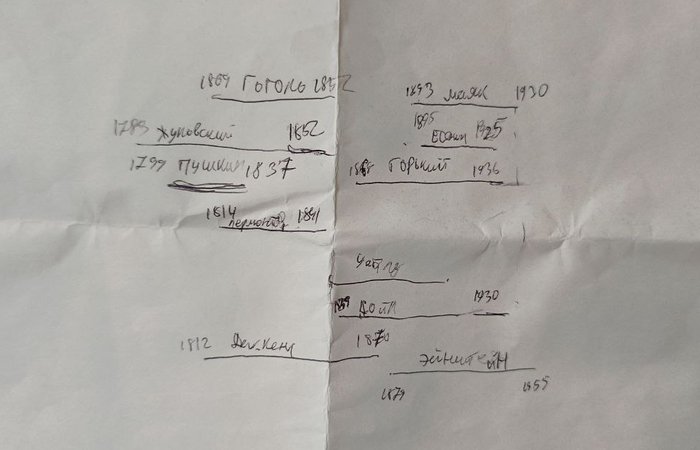 1809 Гоголь 1852
1893 маяк 1930
1783 Жуковский 1852
1895 Есенин 1925
1799 Пушкин 1837
1868 Горький 1936
1814 Лермонтов 1841
Уайльд
1859 Дойл 1930
1812 Диккенс 1870
Эйнштейн
1879 1955